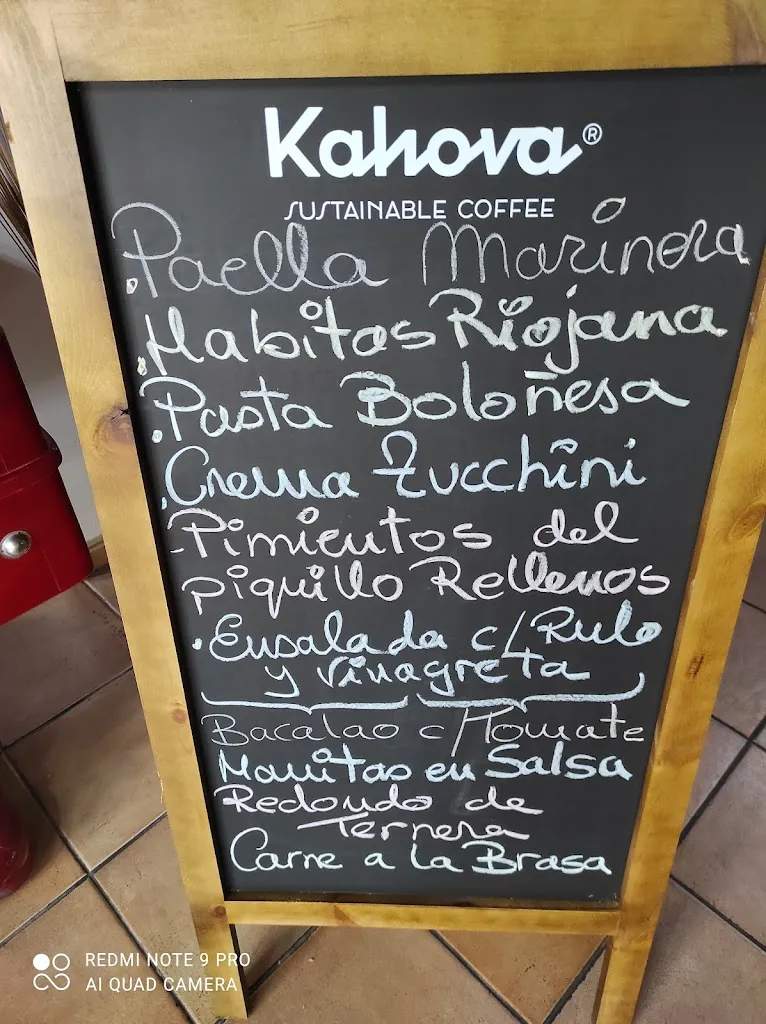 Kahova®
SUSTAINABLE COFFEE
.Paella Marinera
.Habitas Riojana
.Pasta Boloñesa
.Crema Zucchini
-Pimientos del
piquillo Rellenos
.Ensalada c/Rulo
y vinagreta
Bacalao c/Tomate
Manitas en Salsa
Redondo de
Ternera
Carne a la Brasa
REDMI NOTE 9 PRO
AI QUAD CAMERA